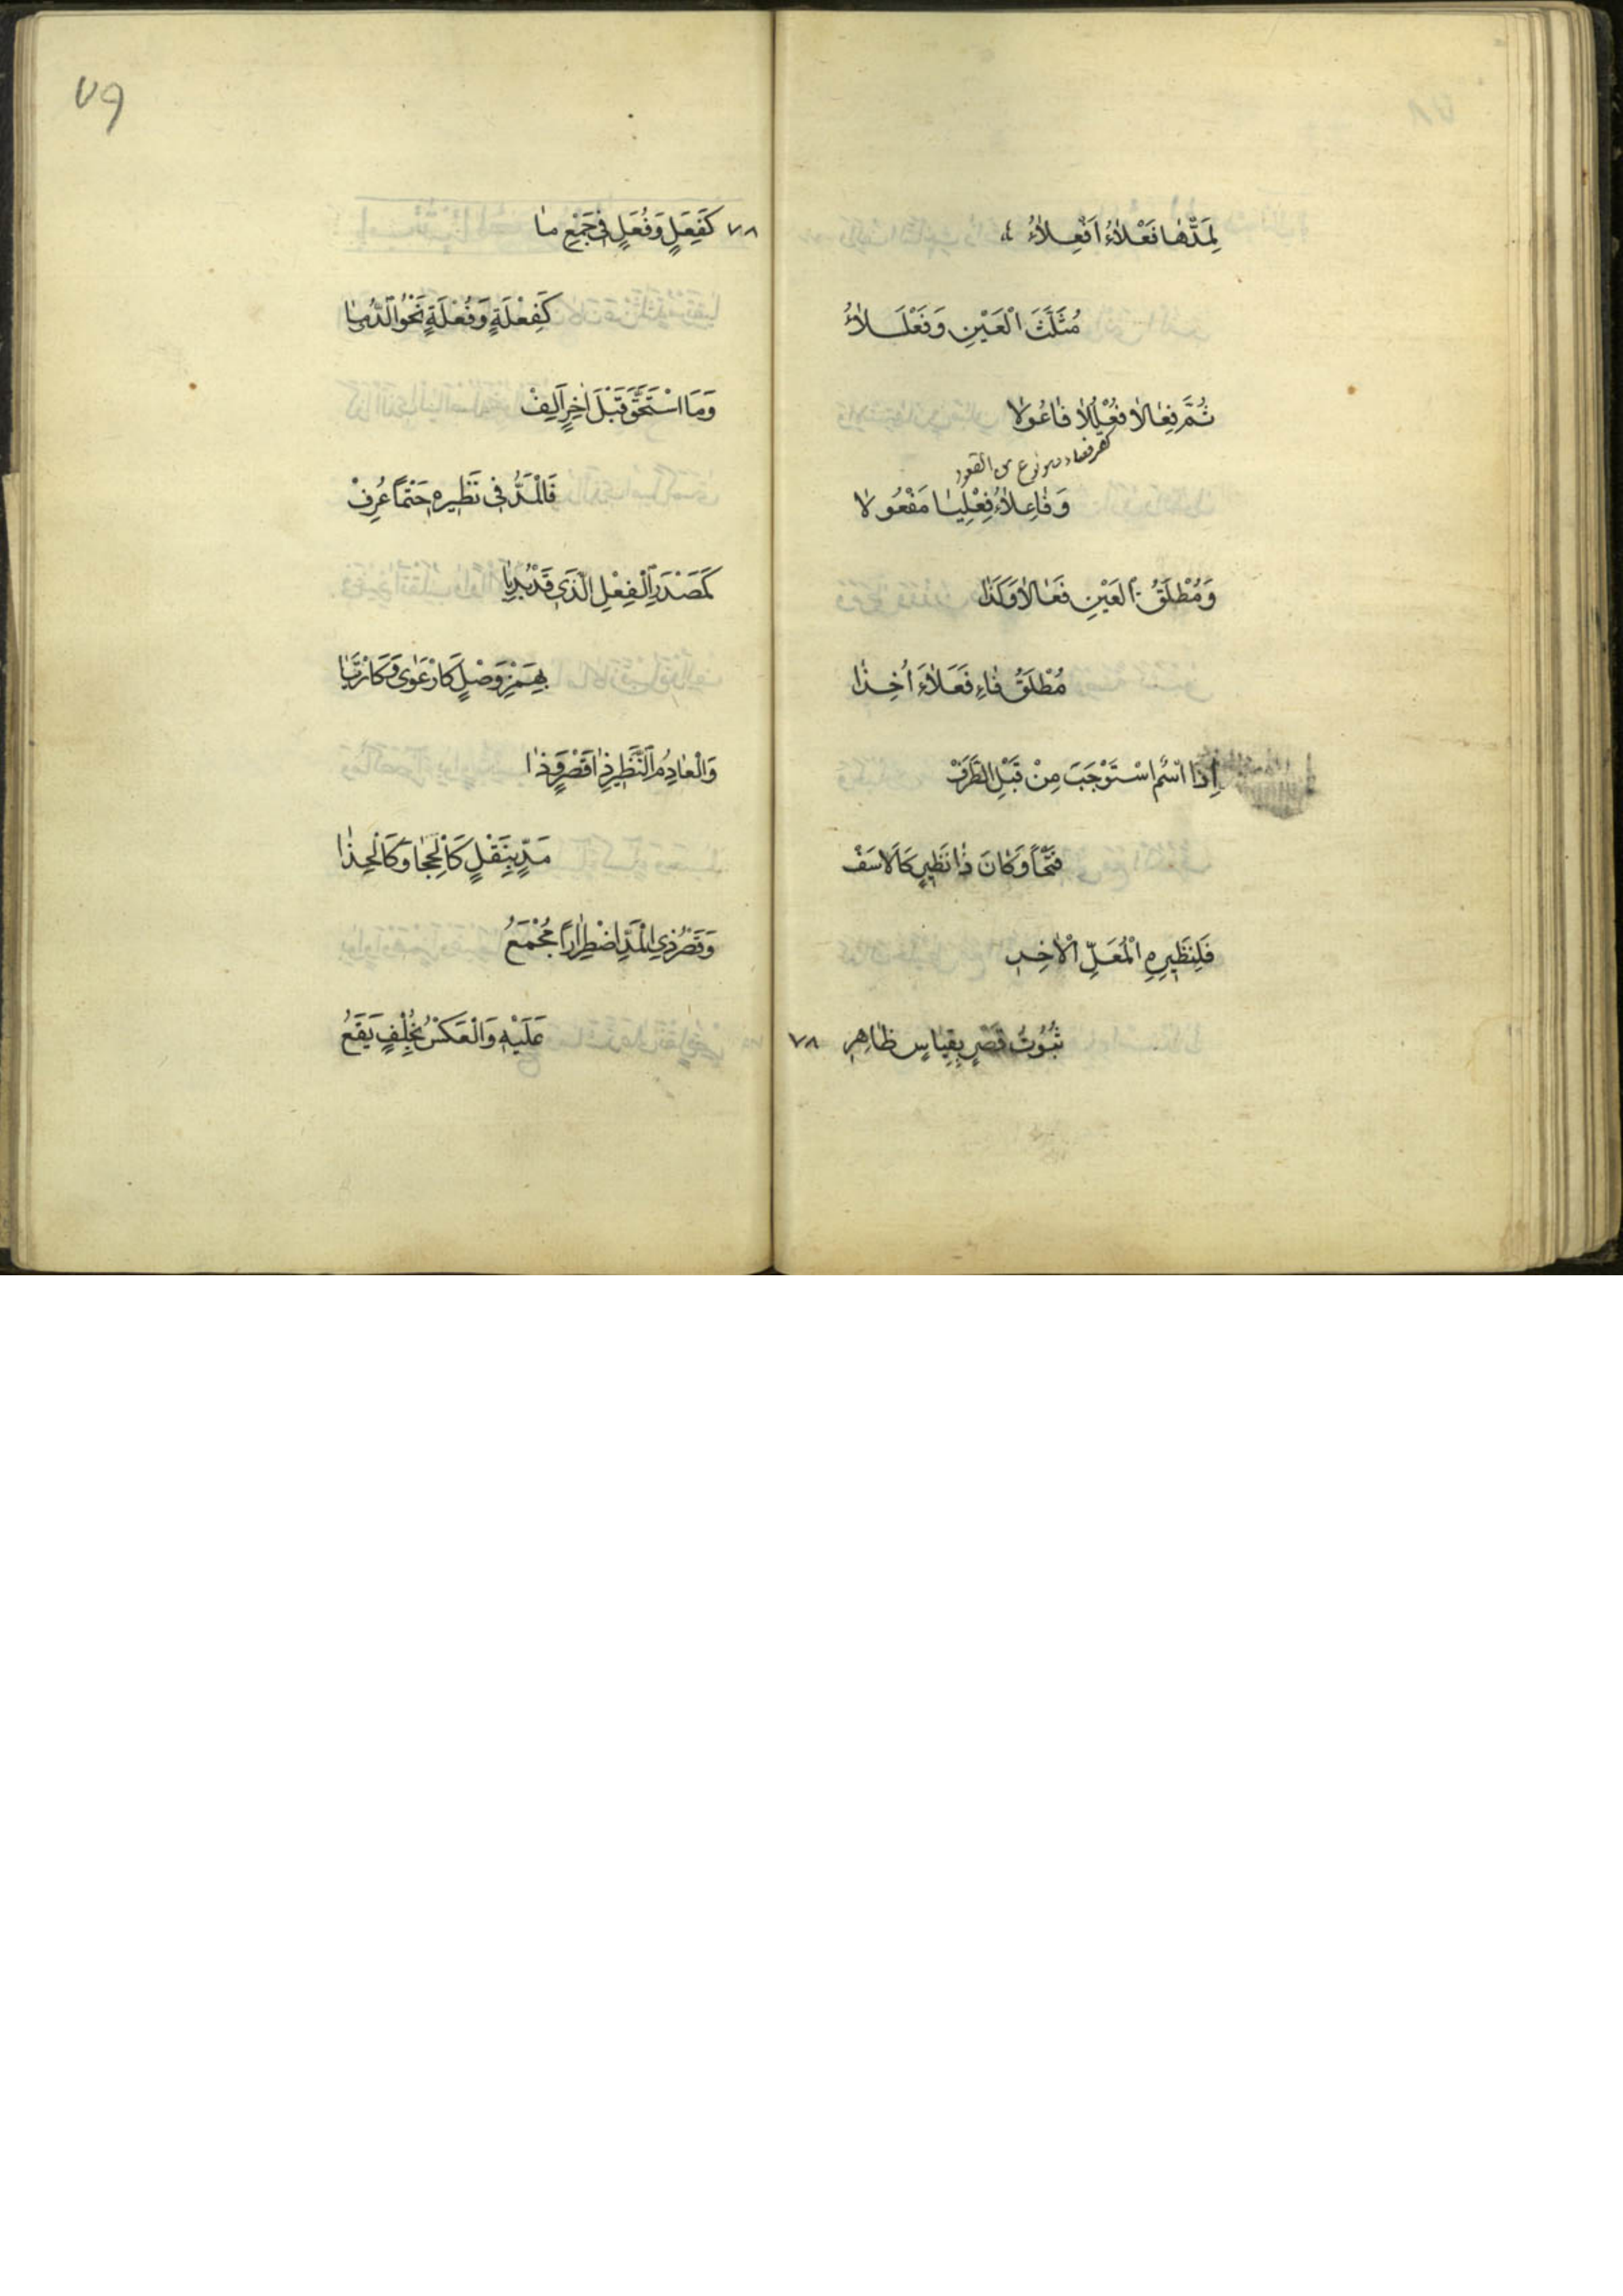 لِمَدِّهٰا فَعْلاٰءُ اَفْعِلاٰءُ
مُثَلَّثَ الْعَيْنِ وَفَعْلَلاٰءُ
ثُمَّ فِعٰالاٰ فُعْلُلاٰ فٰاعُولاٰ
وَفٰاعِلاٰءُ فِعْلِيٰا مَفْعُولاٰ
وَمُطْلَقُ الْعَيْنِ فَعٰالاٰ وَكَذٰا
مُطْلَقُ فٰاءٍ فَعَلاٰءُ اُخِذٰا
اِذَا اسْمٌ اسْتَوْجَبَ مِنْ قَبْلِ الطَّرَفْ
فَتْحًا وَكٰانَ ذٰا نَظِيرٍ كَالاَسَفْ
فَلِنَظِيرِهِ الْمُعَلِّ الْاٰخِرِ
ثُبُوتُ قَصْرٍ بِقِيٰاسٍ ظٰاهِرِ
٧٨
٧٩
٧٨ كَفِعَلٍ وَفُعَلٍ فِي جَمْعِ مٰا
كَفِعْلَةٍ وَفُعْلَةٍ نَحْوُ الدُّمىٰ
وَمَا اسْتَحَقَّ قَبْلَ اٰخِرٍ اَلِفْ
فَالْمَدُّ فِى نَظِيرِهِ حَتْمًا عُرِفْ
كَمَصْدَرِ الْفِعْلِ الَّذِي قَدْ بُدِيٰا
بِهَمْزِ وَصْلٍ كَارْعَوٰى وَكَارْتَاٰى
وَالْعٰادِمُ النَّظِيرِ ذٰا قَصْرٍ وَذٰا
مَدٍّ بِنَقْلٍ كَالْحِجٰا وَكَالْحِذٰا
وَقَصْرُ ذِي الْمَدِّ اضْطِرٰارًا مُجْمَعُ
عَلَيْهِ وَالْعَكْسُ بِخُلْفٍ يَقَعُ